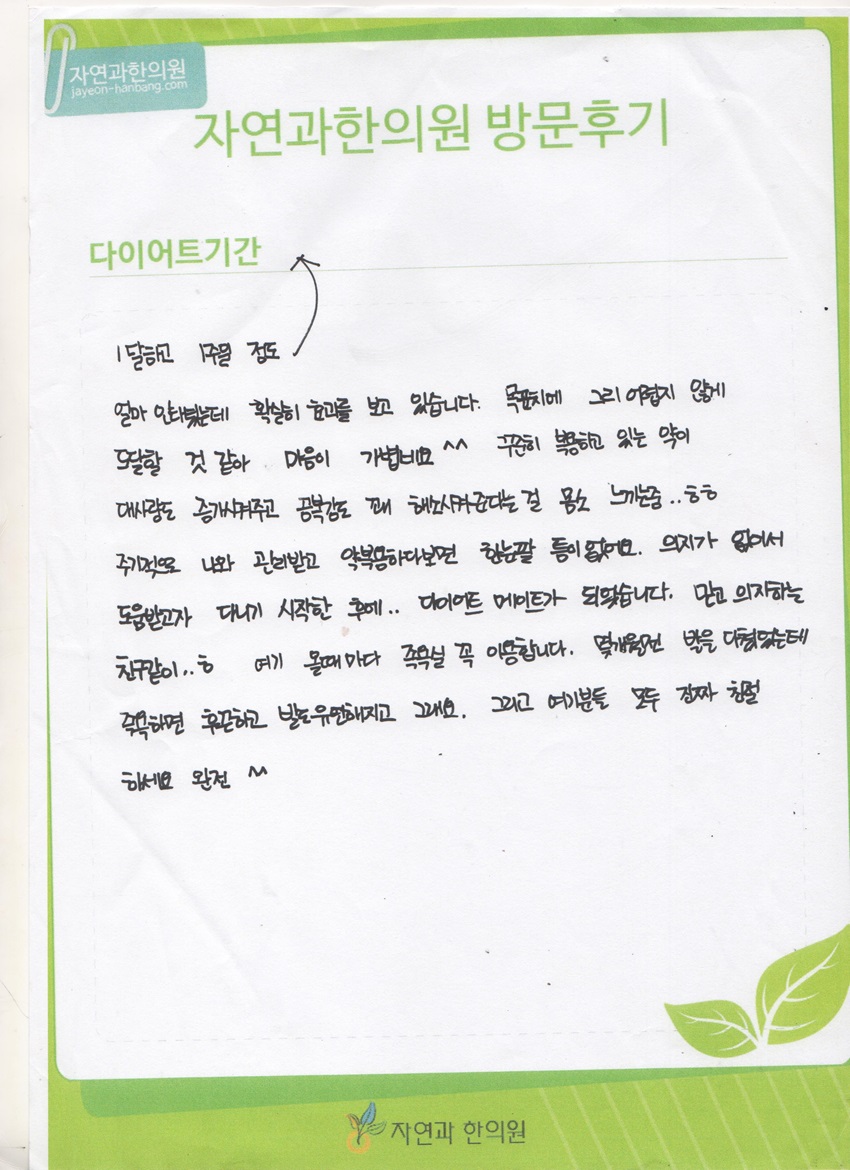 자연과한의원
jayeon-hanbang.com
자연과한의원 방문후기
다이어트기간
1달하고 1주일 정도
얼마 안되었는데 확실히 효과를 보고 있습니다. 목표치에 그리 어렵지 않게
도달할 것 같아 마음이 가볍네요 ^^ 꾸준히 복용하고 있는 약이
대사량도 증가시켜주고 공복감도 꽤 해소시켜준다는 걸 몸소 느끼는중..ㅎㅎ
주기적으로 나와 관리받고 약복용하다보면 한눈팔 틈이 없어요. 의지가 없어서
도움받고자 다니기 시작한 후에.. 다이어트 메이트가 되었습니다. 믿고 의지하는
친구같이..ㅎ 여기 올때마다 족욕실 꼭 이용합니다. 몇개월전 발을 다쳤었는데
족욕하면 후끈하고 발도유연해지고 그래요. 그리고 여기분들 모두 진짜 친절
하세요 완전 ^^
자연과 한의원